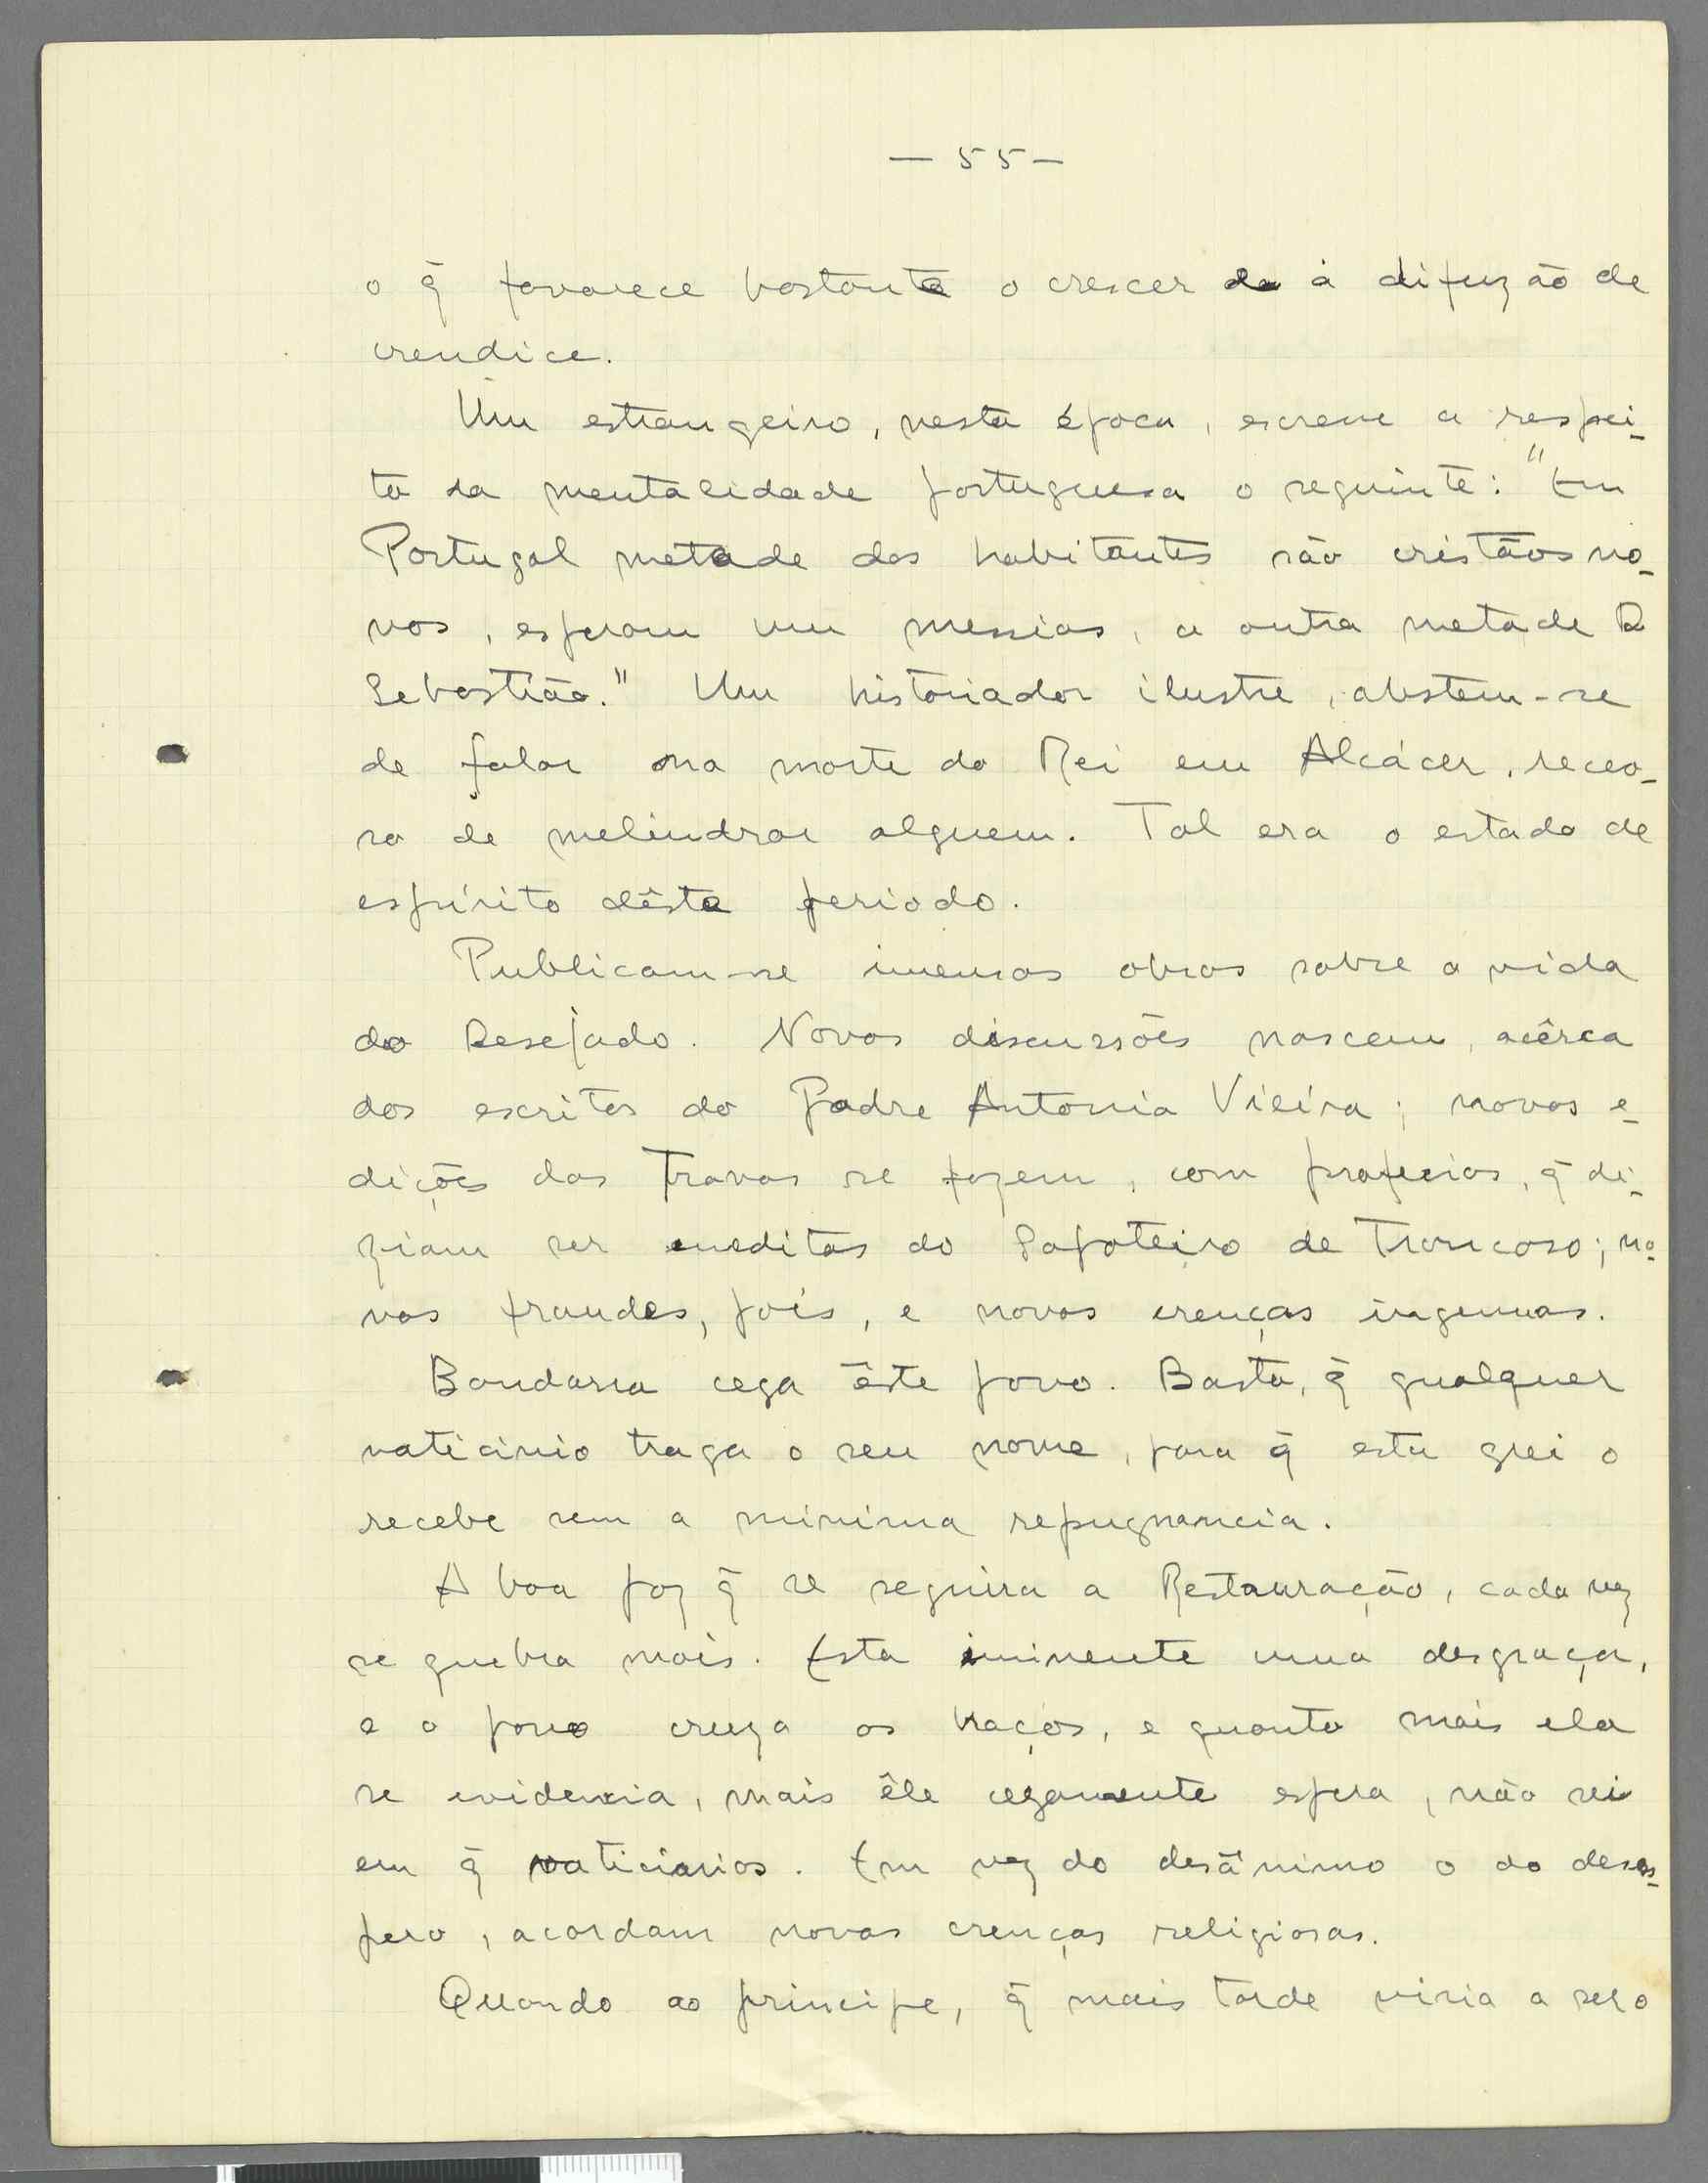 — 55 —
o q̃ favorece bastante o crescer da à difuzão de
crendice.
Um estrangeiro, nesta época, escreve a respei-
to da mentalidade portuguesa o seguinte: "Em
Portugal metade dos habitantes são cristãos no-
vos, esperam um messias, a outra metade D.
Sebastião." Um historiador ilustre, abstem-se
de falar na morte do Rei em Alcácer, receo-
so de melindrar alguem. Tal era o estado de
espírito dêste periodo.
Publicam-se imensas obras sobre a vida
do Desejado. Novas discussões nascem, acêrca
dos escritos do Padre Antonio Vieira; novas e-
dições das Trovas se fazem, com profecias, q̃ di-
ziam ser ineditas do Sapateiro de Trancoso; no-
vas fraudes, pois, e novas crenças ingenuas.
Bandarra cega êste povo. Basta, q̃ qualquer
vaticinio traga o seu nome, para q̃ esta grei o
recebe sem a minima repugnancia.
A boa paz q̃ se seguira a Restauração, cada vez
se quebra mais. Esta iminente uma desgraça,
e o povo cruza os braços, e quanto mais ela
se evidencia, mais êle cegamente espera, não sei
em q̃ vaticinios. Em vez do desânimo o do deses-
pero, acordam novas crenças religiosas.
Quando ao principe, q̃ mais tarde viria a ser o